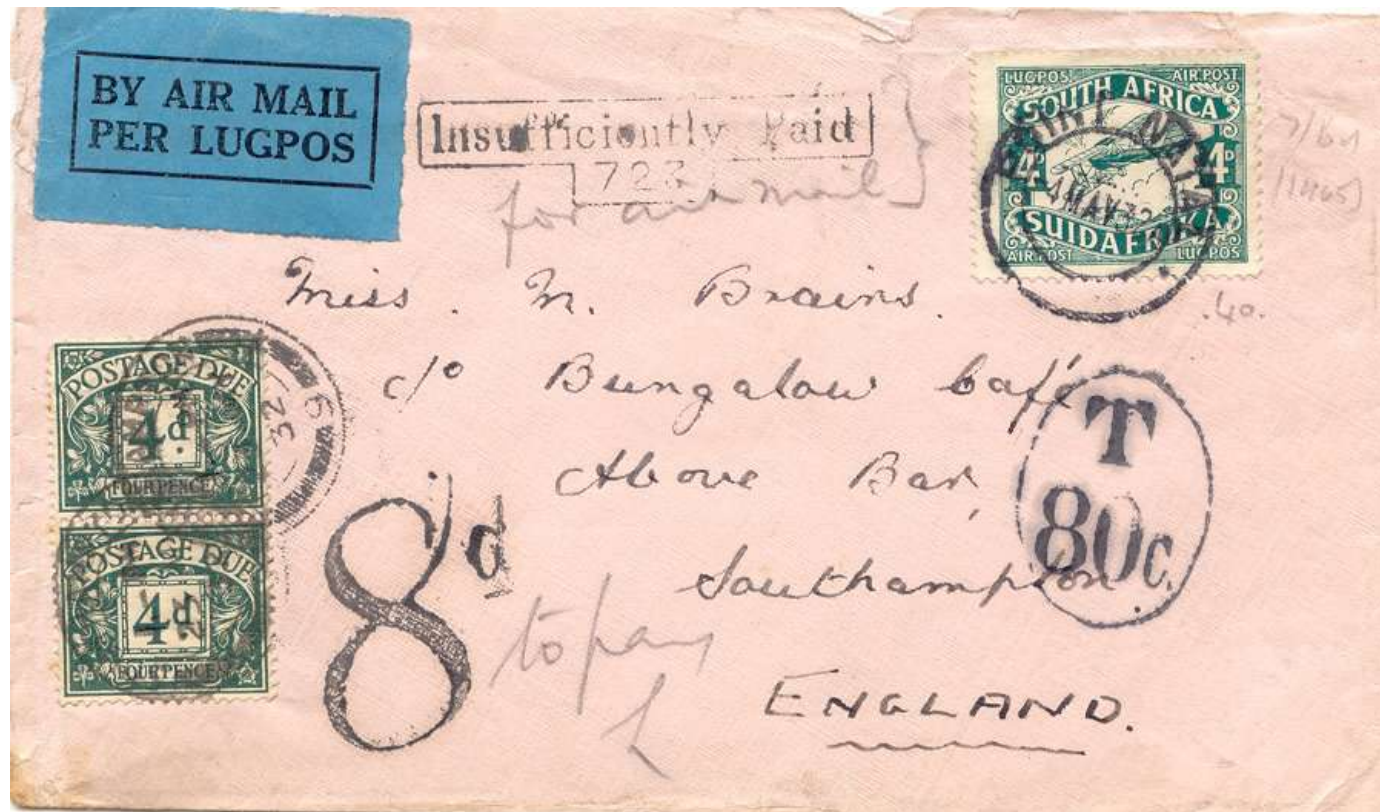 BY AIR MAIL
PER LUGPOS
Insufficiently Paid
723
for air mail
LUGPOS AIR POST
SOUTH AFRICA
4D 4D
SUIDAFRIKA
AIR POST LUGPOS
POINT NATAL
4 MAY 32
.40.
Miss. M. Brains.
c/o Bungalow Café
Above Bar,
Southampton
ENGLAND.
T
80c.
POSTAGE DUE
4d
FOUR PENCE
POSTAGE DUE
4d
FOUR PENCE
32
8d
to pay